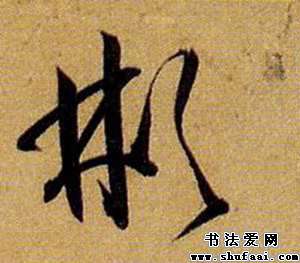 彬
书法爱网
www.shufaai.com